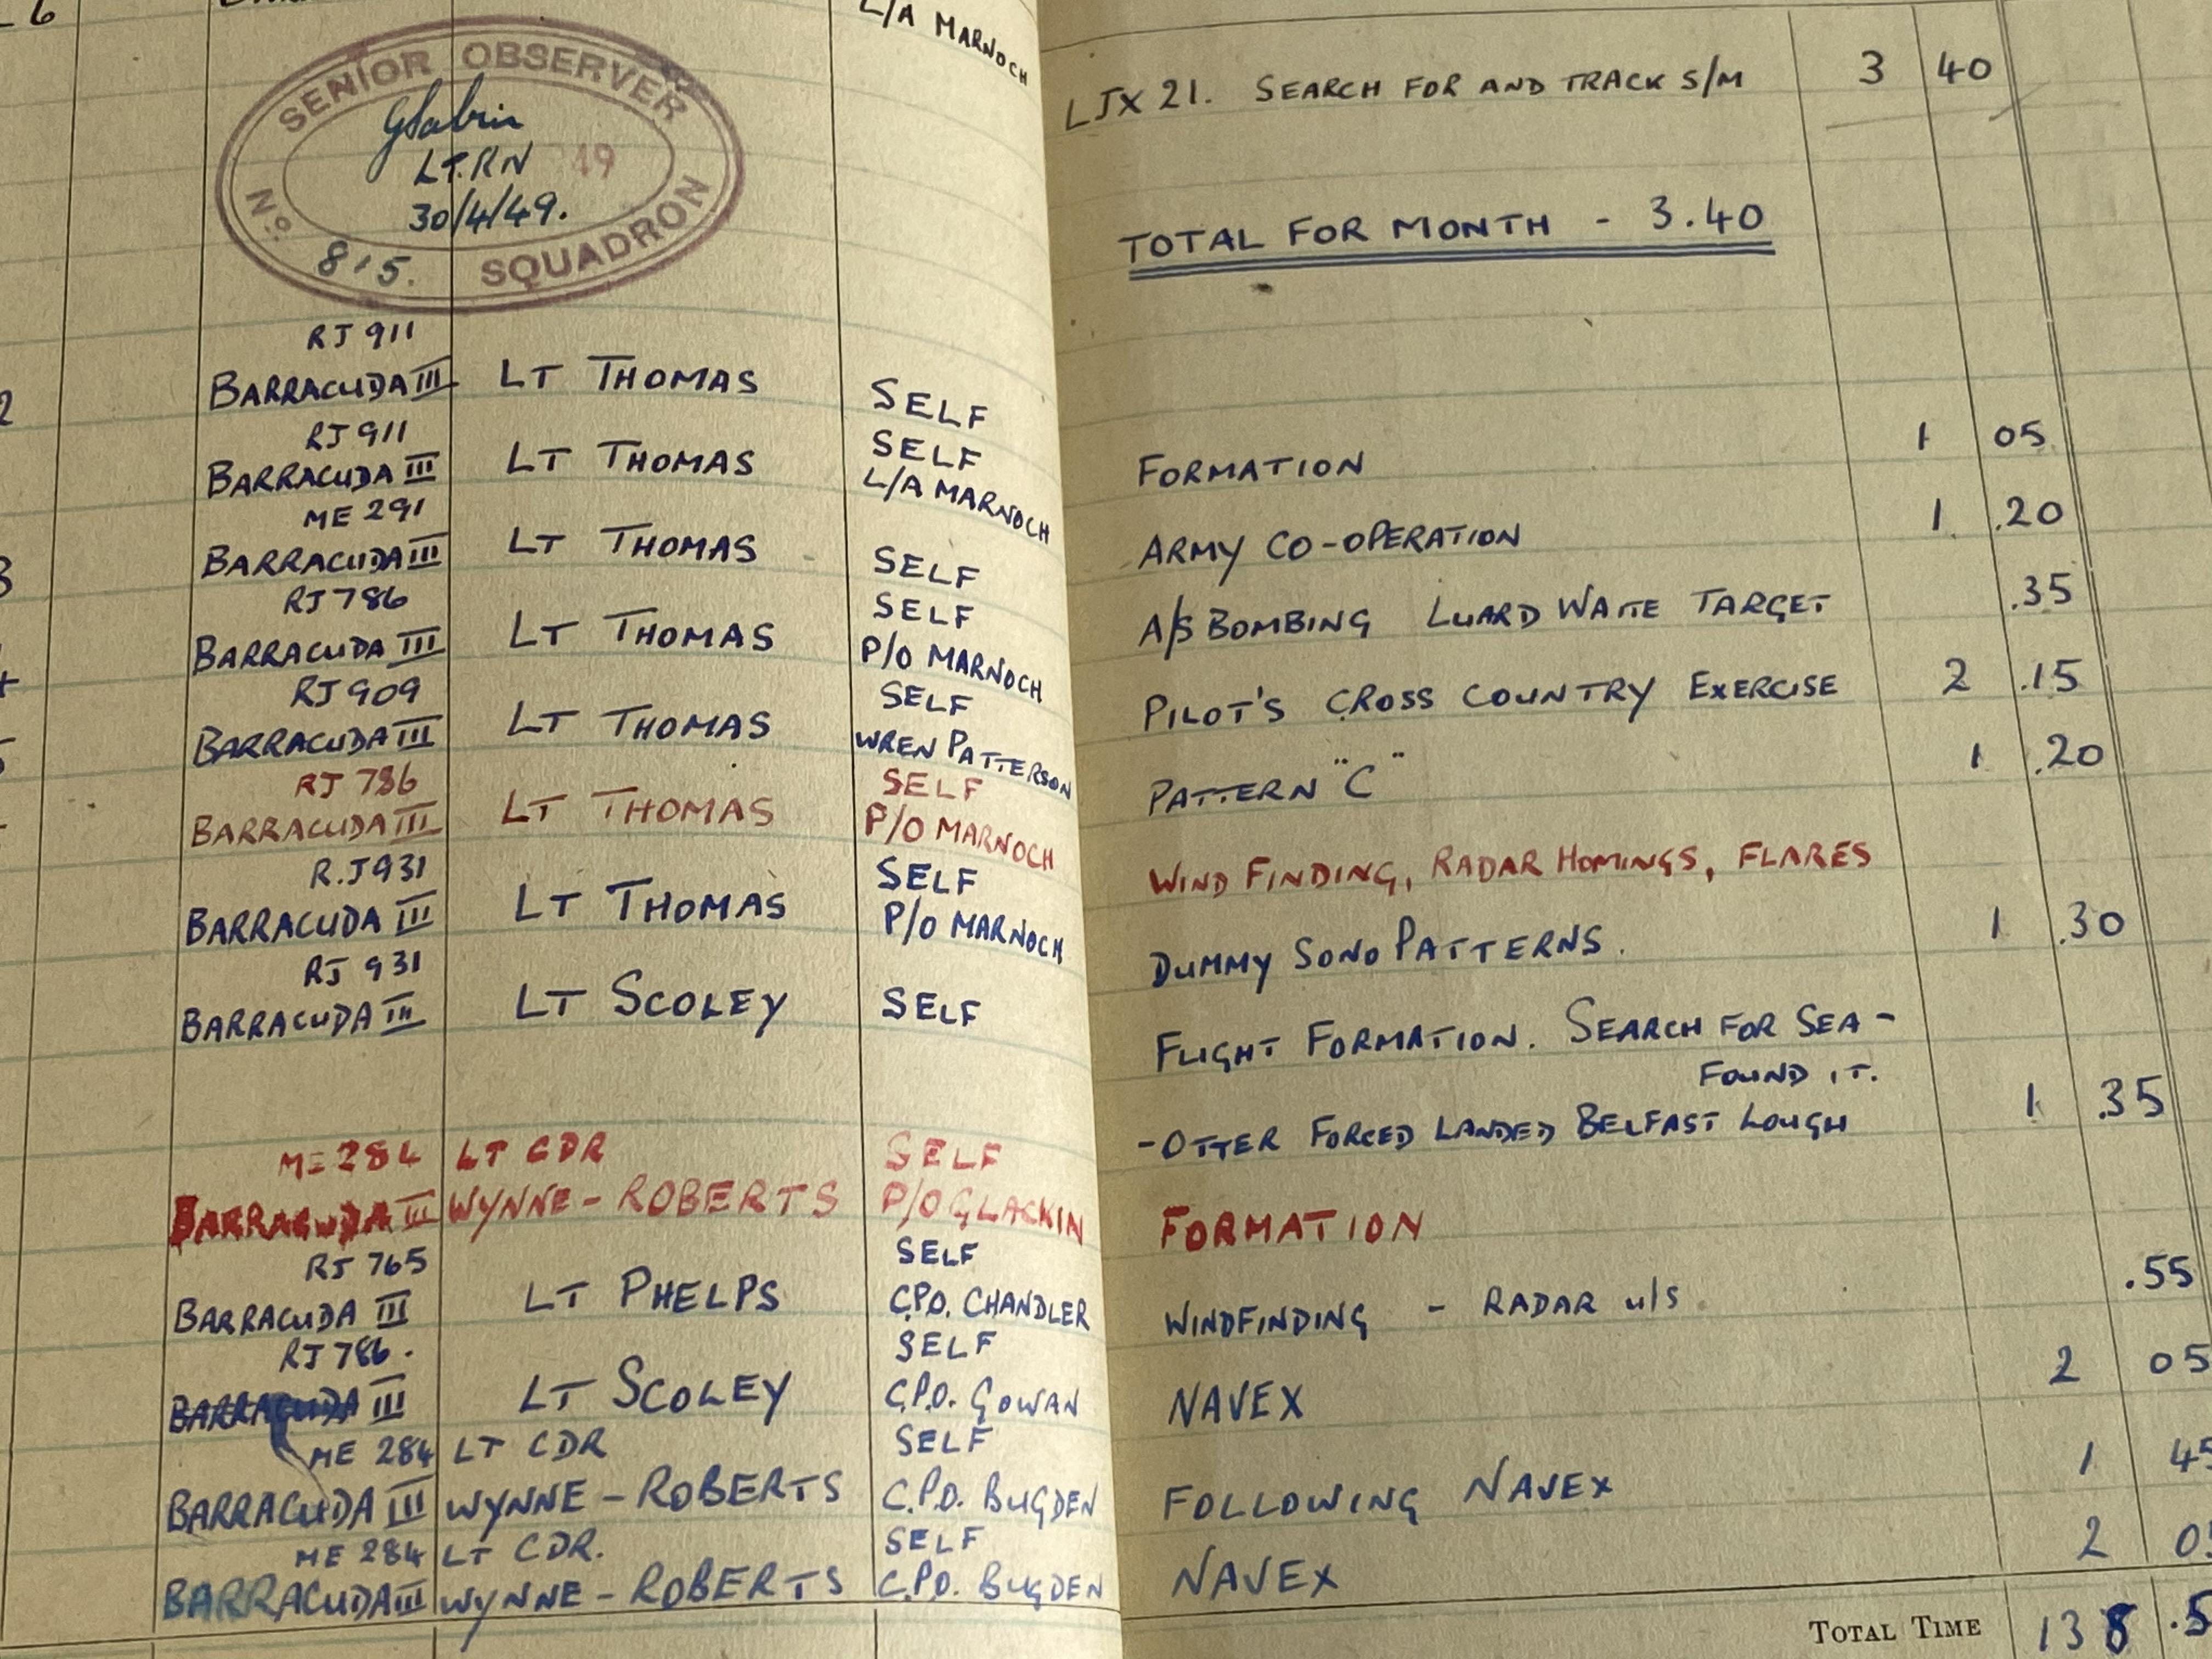 6
L/A MARNOCH
LJX 21. SEARCH FOR AND TRACK S/M 3 40
SENIOR OBSERVER
LT. RN 49
30/4/49.
No. 815. SQUADRON
TOTAL FOR MONTH - 3.40
RJ 911
BARRACUDA III LT THOMAS SELF FORMATION 1 05
RJ 911 SELF
BARRACUDA III LT THOMAS L/A MARNOCH ARMY CO-OPERATION 1 .20
ME 291
BARRACUDA III LT THOMAS SELF A/S BOMBING LUARD WAITE TARGET .35
RJ 786 SELF
BARRACUDA III LT THOMAS P/O MARNOCH PILOT'S CROSS COUNTRY EXERCISE 2 .15
RJ 909 SELF
BARRACUDA III LT THOMAS WREN PATTERSON PATTERN "C" 1 .20
RJ 786 SELF
BARRACUDA III LT THOMAS P/O MARNOCH WIND FINDING, RADAR HOMINGS, FLARES
R.J931 SELF
BARRACUDA III LT THOMAS P/O MARNOCH DUMMY SONO PATTERNS. 1 .30
RJ 931
BARRACUDA III LT SCOLEY SELF FLIGHT FORMATION. SEARCH FOR SEA-
FOUND IT.
-OTTER FORCED LANDED BELFAST LOUGH 1 .35
ME 284 LT CDR SELF
BARRACUDA III WYNNE-ROBERTS P/O GLACKIN FORMATION
RJ 765 SELF
BARRACUDA III LT PHELPS C.P.O. CHANDLER WINDFINDING - RADAR u/s .55
RJ 786. SELF
BARRACUDA III LT SCOLEY C.P.O. GOWAN NAVEX 2 05
ME 284 LT CDR SELF
BARRACUDA III WYNNE-ROBERTS C.P.O. BUGDEN FOLLOWING NAVEX 1 45
ME 284 LT CDR. SELF
BARRACUDA III WYNNE-ROBERTS C.P.O. BUGDEN NAVEX 2 05
TOTAL TIME 138 .5